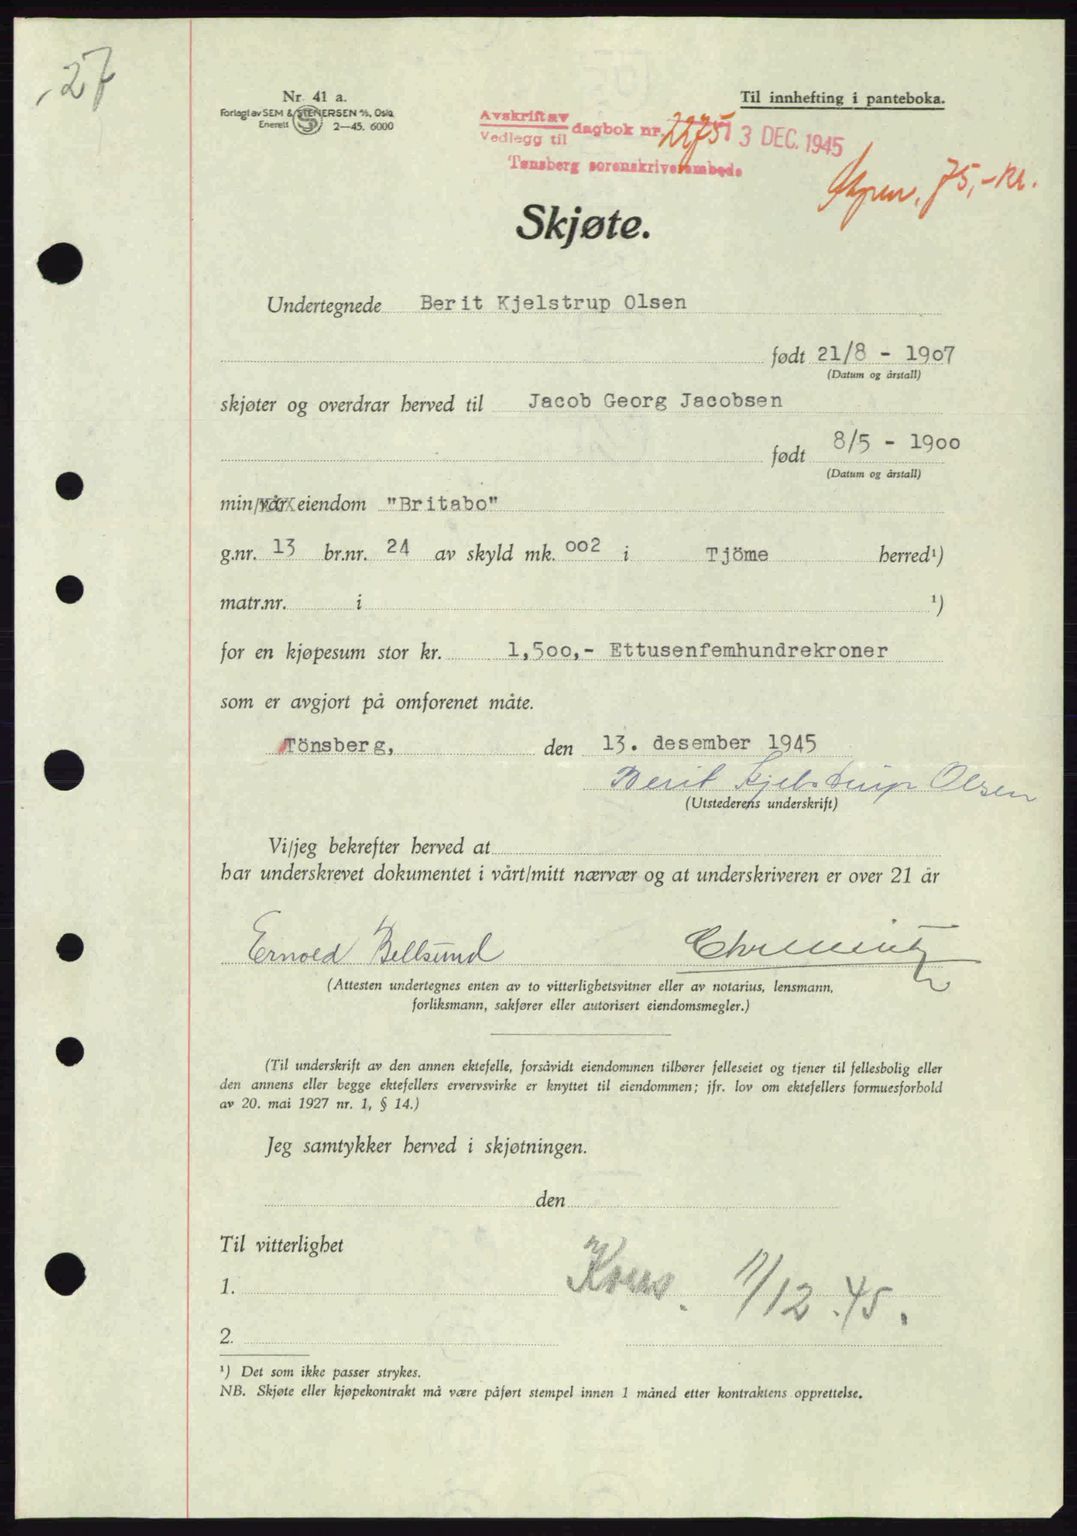 27
Nr. 41 a.
Forlagt av SEM & STENERSEN A/S, Oslo
Enerett 2—45. 6000
Til innhefting i panteboka.
Avskrift av
Vedlegg til dagbok nr. 2275 13 DEC. 1945
Tønsberg sorenskriverembede
75,- kr.
Skjøte.
Undertegnede Berit Kjelstrup Olsen
født 21/8 - 1907
(Datum og årstall)
skjøter og overdrar herved til Jacob Georg Jacobsen
født 8/5 - 1900
(Datum og årstall)
min/vår eiendom "Britabo"
g.nr. 13 br.nr. 24 av skyld mk. 002 i Tjöme herred¹)
matr.nr. i ¹)
for en kjøpesum stor kr. 1,500,- Ettusenfemhundrekroner
som er avgjort på omforenet måte.
Tönsberg, den 13. desember 1945
Berit Kjelstrup Olsen
(Utstederens underskrift)
Vi/jeg bekrefter herved at
har underskrevet dokumentet i vårt/mitt nærvær og at underskriveren er over 21 år
Ernold Bellsund
(Attesten undertegnes enten av to vitterlighetsvitner eller av notarius, lensmann,
forliksmann, sakfører eller autorisert eiendomsmegler.)
(Til underskrift av den annen ektefelle, forsåvidt eiendommen tilhører felleseiet og tjener til fellesbolig eller
den annens eller begge ektefellers ervervsvirke er knyttet til eiendommen; jfr. lov om ektefellers formuesforhold
av 20. mai 1927 nr. 1, § 14.)
Jeg samtykker herved i skjøtningen.
den
Til vitterlighet
1. 17/12.45.
2.
¹) Det som ikke passer strykes.
NB. Skjøte eller kjøpekontrakt må være påført stempel innen 1 måned etter kontraktens opprettelse.